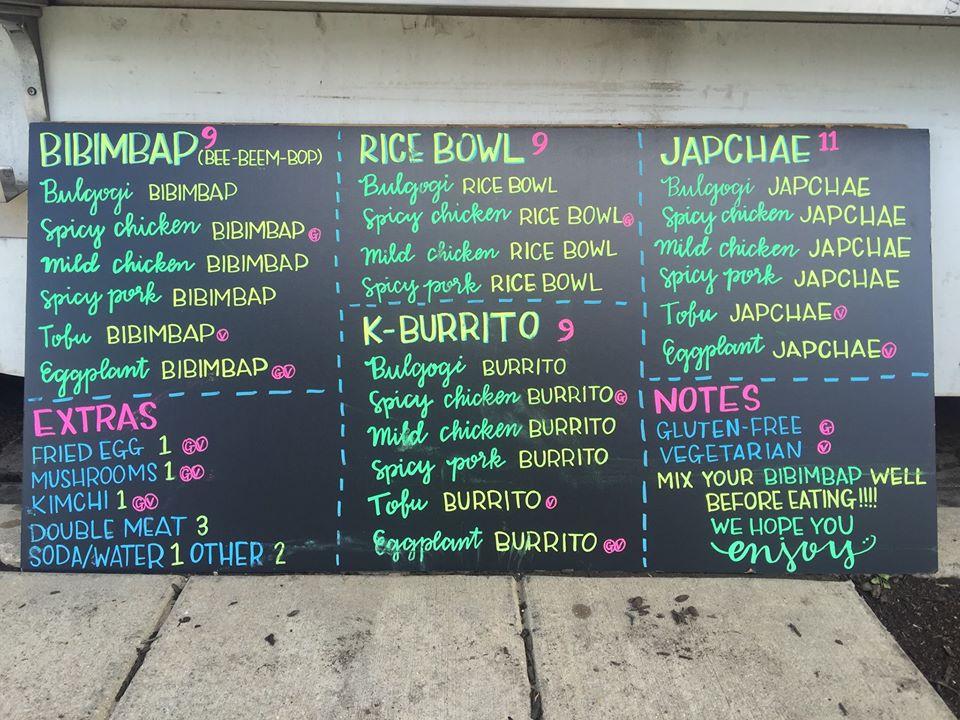 BIBIMBAP 9
(BEE-BEEM-BOP)
Bulgogi BIBIMBAP
Spicy chicken BIBIMBAP G
Mild chicken BIBIMBAP
Spicy pork BIBIMBAP
Tofu BIBIMBAP V
Eggplant BIBIMBAP GV
EXTRAS
FRIED EGG 1 GV
MUSHROOMS 1 GV
KIMCHI 1 GV
DOUBLE MEAT 3
SODA/WATER 1 OTHER 2
RICE BOWL 9
Bulgogi RICE BOWL
Spicy chicken RICE BOWL G
Mild chicken RICE BOWL
Spicy pork RICE BOWL
K-BURRITO 9
Bulgogi BURRITO
Spicy chicken BURRITO G
Mild chicken BURRITO
Spicy pork BURRITO
Tofu BURRITO V
Eggplant BURRITO GV
JAPCHAE 11
Bulgogi JAPCHAE
Spicy chicken JAPCHAE
Mild chicken JAPCHAE
Spicy pork JAPCHAE
Tofu JAPCHAE V
Eggplant JAPCHAE V
NOTES
GLUTEN-FREE G
VEGETARIAN V
MIX YOUR BIBIMBAP WELL
BEFORE EATING!!!!
WE HOPE YOU
enjoy